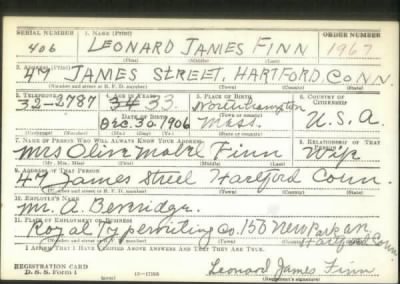 SERIAL NUMBER 1. NAME (Print) ORDER NUMBER
406 LEONARD JAMES FINN 1967
(First) (Middle) (Last)
2. ADDRESS (Print)
47 JAMES STREET, HARTFORD, CONN.
(Number and street or R. F. D. number) (Town) (County) (State)
3. TELEPHONE 4. AGE IN YEARS 5. PLACE OF BIRTH 6. COUNTRY OF CITIZENSHIP
32-2787 34 33 Northampton
DATE OF BIRTH (Town or county)
Dec. 30, 1906 Mass. U.S.A.
(Exchange) (Number) (Mo.) (Day) (Yr.) (State or country)
7. NAME OF PERSON WHO WILL ALWAYS KNOW YOUR ADDRESS 8. RELATIONSHIP OF THAT PERSON
Mrs. Finn Wife
(Mr., Mrs., Miss) (First) (Middle) (Last)
9. ADDRESS OF THAT PERSON
47 James Street Hartford Conn.
(Number and street or R. F. D. number) (Town) (County) (State)
10. EMPLOYER'S NAME
Mr. A.
11. PLACE OF EMPLOYMENT OR BUSINESS
Royal Typewriting Co. 150 New Park av. Hartford Conn
(Number and street or R. F. D. number) (Town) (County) (State)
I AFFIRM THAT I HAVE VERIFIED ABOVE ANSWERS AND THAT THEY ARE TRUE.
REGISTRATION CARD
D. S. S. Form 1 Leonard James Finn
(Registrant's signature)